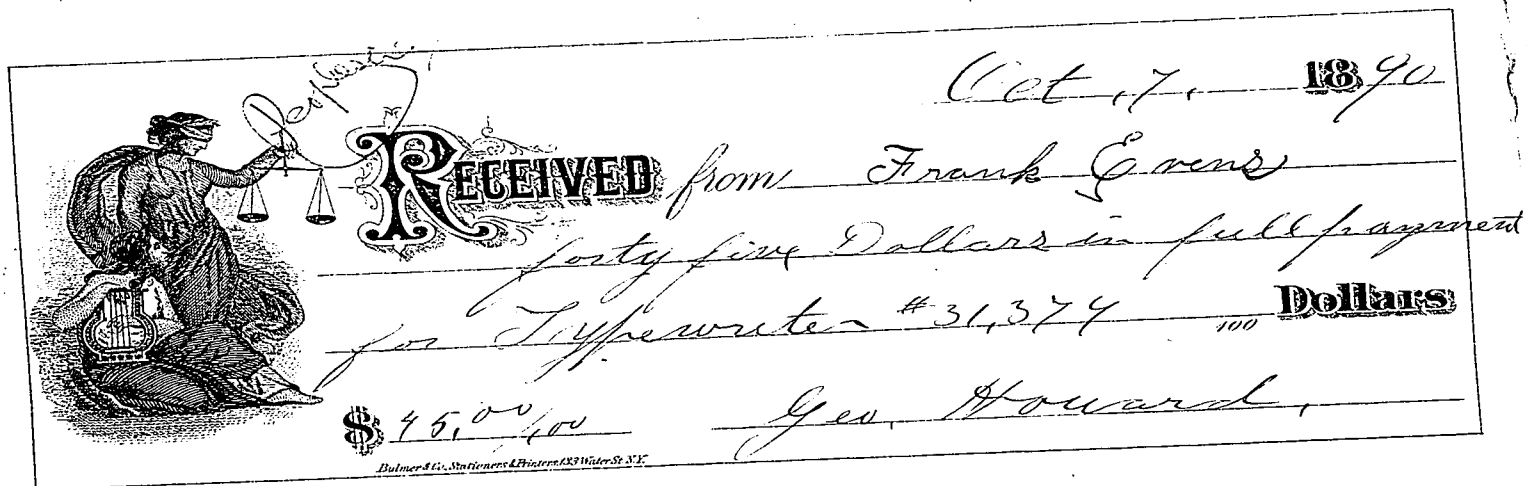 Oct, 7, 1890
RECEIVED from Frank Evens
forty five Dollars in full payment
for Typewriter #31,374 100 Dollars
$ 45,00/100 Geo, Howard,
Bulmer & Co. Stationers & Printers 123 Water St N.Y.